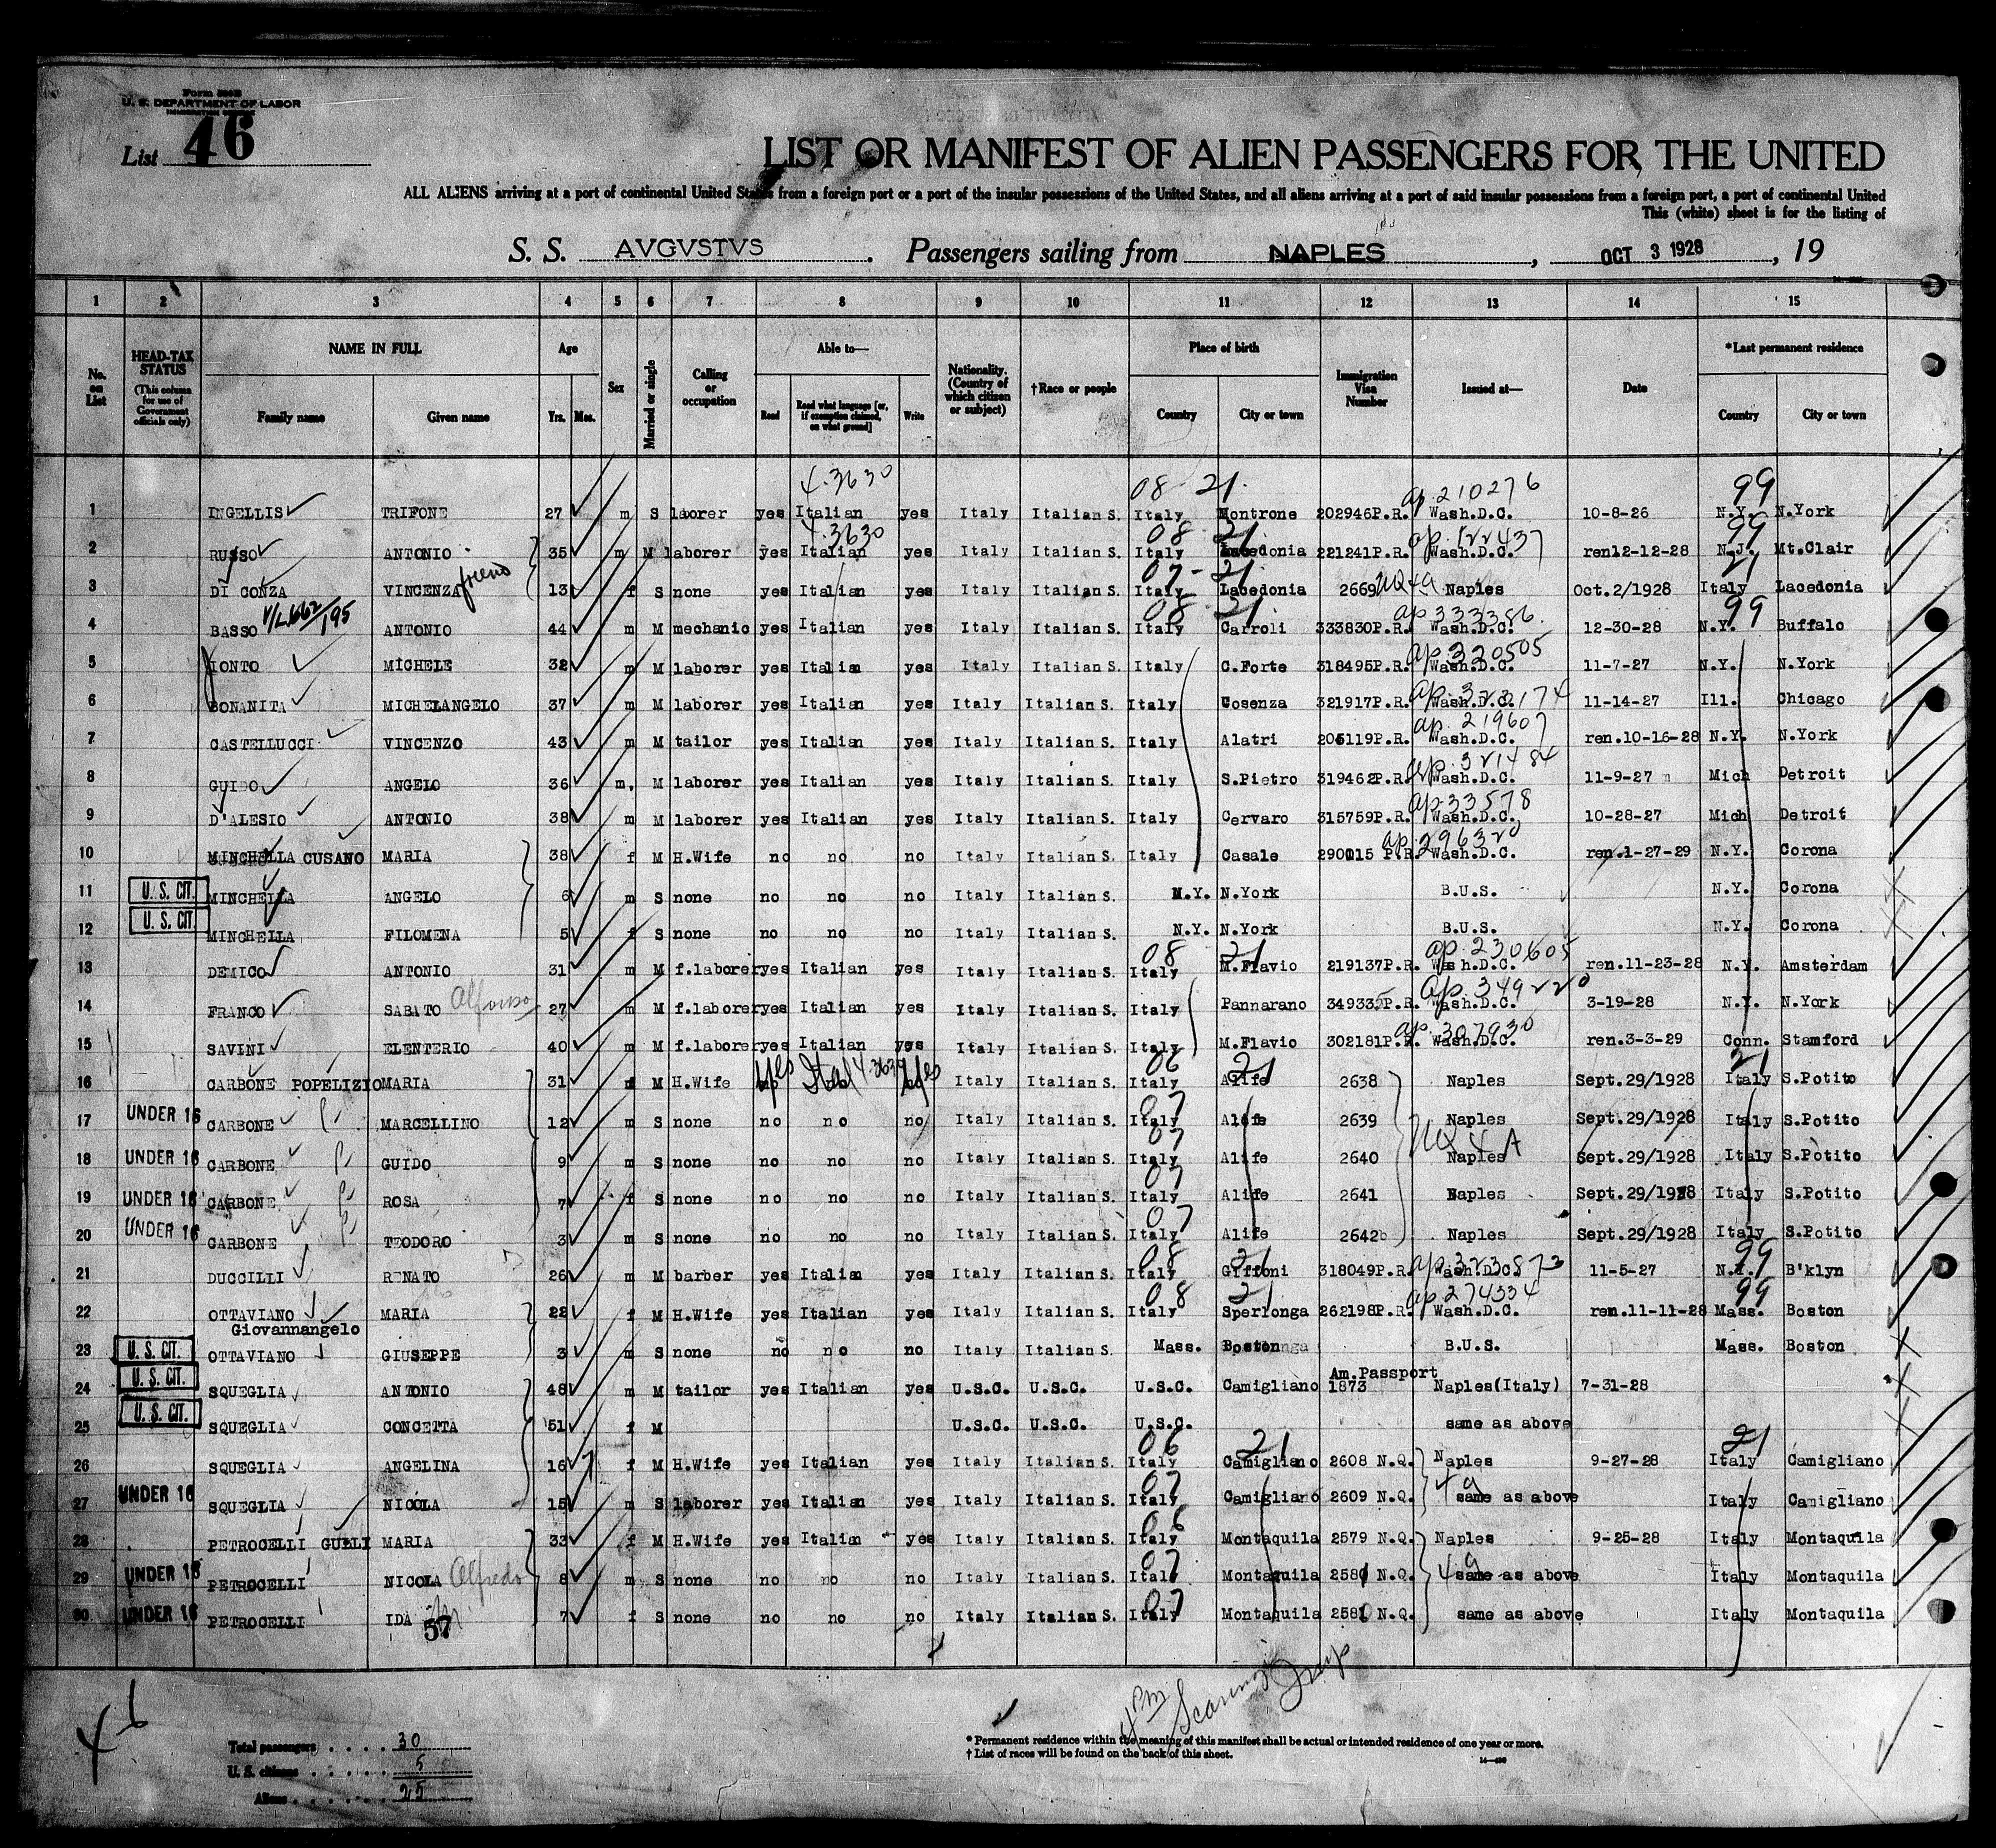 Form 500B
U. S. DEPARTMENT OF LABOR
List 46
LIST OR MANIFEST OF ALIEN PASSENGERS FOR THE UNITED
ALL ALIENS arriving at a port of continental United States from a foreign port or a port of the insular possessions of the United States, and all aliens arriving at a port of said insular possessions from a foreign port, a port of continental United
This (white) sheet is for the listing of
S. S. AVGVSTVS. Passengers sailing from NAPLES, OCT 3 1928, 19
1 2 3 4 5 6 7 8 9 10 11 12 13 14 15
No. on List
HEAD-TAX STATUS (This column for use of Government officials only)
NAME IN FULL Family name Given name
Age Yrs. Mos.
Sex
Married or single
Calling or occupation
Able to— Read Read what language [or, if exemption claimed, on what ground] Write
Nationality. (Country of which citizen or subject)
†Race or people
Place of birth Country City or town
Immigration Visa Number
Issued at—
Date
*Last permanent residence Country City or town
4-3630 08 21 ap. 210276 99
1 INGELLIS TRIFONE 27 m S laorer yes Italian yes Italy Italian S. Italy Montrone 202946P.R. Wash.D.C. 10-8-26 N.Y. N.York
4-3630 08 21 ap. 122437 99
2 RUSSO ANTONIO 35 m M laborer yes Italian yes Italy Italian S. Italy Lacedonia 221241P.R. Wash.D.C. ren12-12-28 N.J. Mt.Clair
07 - 21 21
3 DI CONZA VINCENZA 13 f S none yes Italian yes Italy Italian S. Italy Lacedonia 2669 NQ 4a Naples Oct.2/1928 Italy Lacedonia
V/L 662/195 08 21 ap 333386. 99
4 BASSO ANTONIO 44 m M mechanic yes Italian yes Italy Italian S. Italy Carroli 333830P.R. Wash.D.C. 12-30-28 N.Y. Buffalo
ap 320505
5 IONTO MICHELE 32 m M laborer yes Italian yes Italy Italian S. Italy C.Forte 318495P.R. Wash.D.C. 11-7-27 N.Y. N.York
ap. 323174
6 BONANITA MICHELANGELO 37 m M laborer yes Italian yes Italy Italian S. Italy Cosenza 321917P.R. Wash.D.C. 11-14-27 Ill. Chicago
ap. 219607
7 CASTELLUCCI VINCENZO 43 m M tailor yes Italian yes Italy Italian S. Italy Alatri 205119P.R. Wash.D.C. ren.10-16-28 N.Y. N.York
ap. 321484
8 GUIDO ANGELO 36 m. M laborer yes Italian yes Italy Italian S. Italy S.Pietro 319462P.R. Wash.D.C. 11-9-27 Mich Detroit
ap 33578
9 D'ALESIO ANTONIO 38 m M laborer yes Italian yes Italy Italian S. Italy Cervaro 315759P.R. Wash.D.C. 10-28-27 Mich Detroit
ap. 296320
10 MINCHELLA CUSANO MARIA 38 f M H.Wife no no no Italy Italian S. Italy Casale 290015 P.R. Wash.D.C. ren.1-27-29 N.Y. Corona
11 U. S. CIT. MINCHELLA ANGELO 6 m S none no no no Italy Italian S. N.Y. N.York B.U.S. N.Y. Corona
12 U. S. CIT. MINCHELLA FILOMENA 5 f S none no no no Italy Italian S. N.Y. N.York B.U.S. N.Y. Corona
08 21 ap. 230605
13 DEMICO ANTONIO 31 m M f.laborer yes Italian yes Italy Italian S. Italy M.Flavio 219137P.R. Wash.D.C. ren.11-23-28 N.Y. Amsterdam
ap. 349220
14 FRANCO SABATO Alfonso 27 m M f.laborer yes Italian yes Italy Italian S. Italy Pannarano 349335P.R. Wash.D.C. 3-19-28 N.Y. N.York
ap. 307930
15 SAVINI ELENTERIO 40 m M f.laborer yes Italian yes Italy Italian S. Italy M.Flavio 302181P.R. Wash.D.C. ren.3-3-29 Conn. Stamford
06 21 21
16 CARBONE POPELIZIO MARIA 31 f M H.Wife yes Ital 4-3639 yes Italy Italian S. Italy Alife 2638 Naples Sept.29/1928 Italy S.Potito
07
17 UNDER 16 CARBONE MARCELLINO 12 m S none no no no Italy Italian S. Italy Alife 2639 Naples Sept.29/1928 Italy S.Potito
07 NQ 4 A
18 UNDER 16 CARBONE GUIDO 9 m S none no no no Italy Italian S. Italy Alife 2640 Naples Sept.29/1928 Italy S.Potito
07
19 UNDER 16 CARBONE ROSA 7 f S none no no no Italy Italian S. Italy Alife 2641 Naples Sept.29/1928 Italy S.Potito
07
20 UNDER 16 CARBONE TEODORO 3 m S none no no no Italy Italian S. Italy Alife 2642 Naples Sept.29/1928 Italy S.Potito
08 21 ap. 323873 99
21 DUCCILLI RENATO 26 m M barber yes Italian yes Italy Italian S. Italy Giffoni 318049P.R. Wash.D.C. 11-5-27 N.Y. B'klyn
08 21 ap. 274334 99
22 OTTAVIANO MARIA 22 f M H.Wife yes Italian yes Italy Italian S. Italy Sperlonga 262198P.R. Wash.D.C. ren.11-11-28 Mass. Boston
Giovannangelo
23 U. S. CIT. OTTAVIANO GIUSEPPE 3 m S none no no no Italy Italian S. Mass. Boston B.U.S. Mass. Boston
24 U. S. CIT. SQUEGLIA ANTONIO 48 m M tailor yes Italian yes U.S.C. U.S.C. U.S.C. Camigliano Am.Passport 1873 Naples(Italy) 7-31-28
25 U. S. CIT. SQUEGLIA CONCETTA 51 f M U.S.C. U.S.C. U.S.C. same as above
06 21 21
26 SQUEGLIA ANGELINA 16 f M H.Wife yes Italian yes Italy Italian S. Italy Camigliano 2608 N.Q. Naples 9-27-28 Italy Camigliano
07 4 a
27 UNDER 16 SQUEGLIA NICOLA 15 m S laborer yes Italian yes Italy Italian S. Italy Camigliano 2609 N.Q. same as above Italy Camigliano
06
28 PETROCELLI GUBLI MARIA 33 f M H.Wife yes Italian yes Italy Italian S. Italy Montaquila 2579 N.Q. Naples 9-25-28 Italy Montaquila
07 4 a
29 UNDER 16 PETROCELLI NICOLA Alfredo 8 m S none no no no Italy Italian S. Italy Montaquila N.Q. same as above Italy Montaquila
07
30 UNDER 16 PETROCELLI IDA 7 f S none no no no Italy Italian S. Italy Montaquila N.Q. same as above Italy Montaquila
57
46
Total passengers . . . . 30
U. S. citizens . . . . . 5
Aliens . . . . . . 25
* Permanent residence within the meaning of this manifest shall be actual or intended residence of one year or more.
† List of races will be found on the back of this sheet.